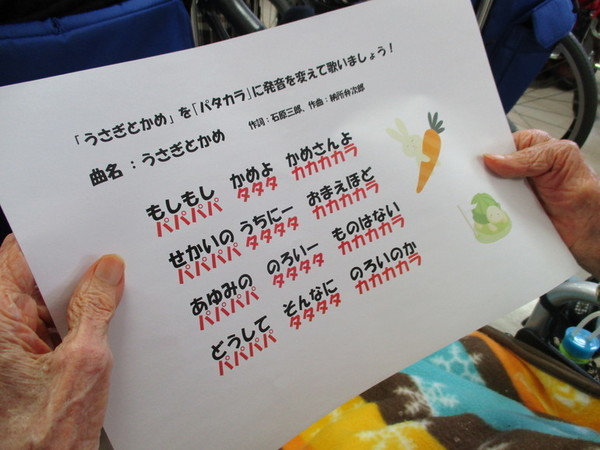 「うさぎとかめ」を「パタカラ」に発音を変えて歌いましょう！
曲名：うさぎとかめ 作詞：石原三郎、作曲：納所弁次郎
もしもし かめよ かめさんよ
パパパパ タタタ カカカカラ
せかいの うちにー おまえほど
パパパパ タタタタ カカカカラ
あゆみの のろいー ものはない
パパパパ タタタタ カカカカラ
どうして そんなに のろいのか
パパパパ タタタタ カカカカラ